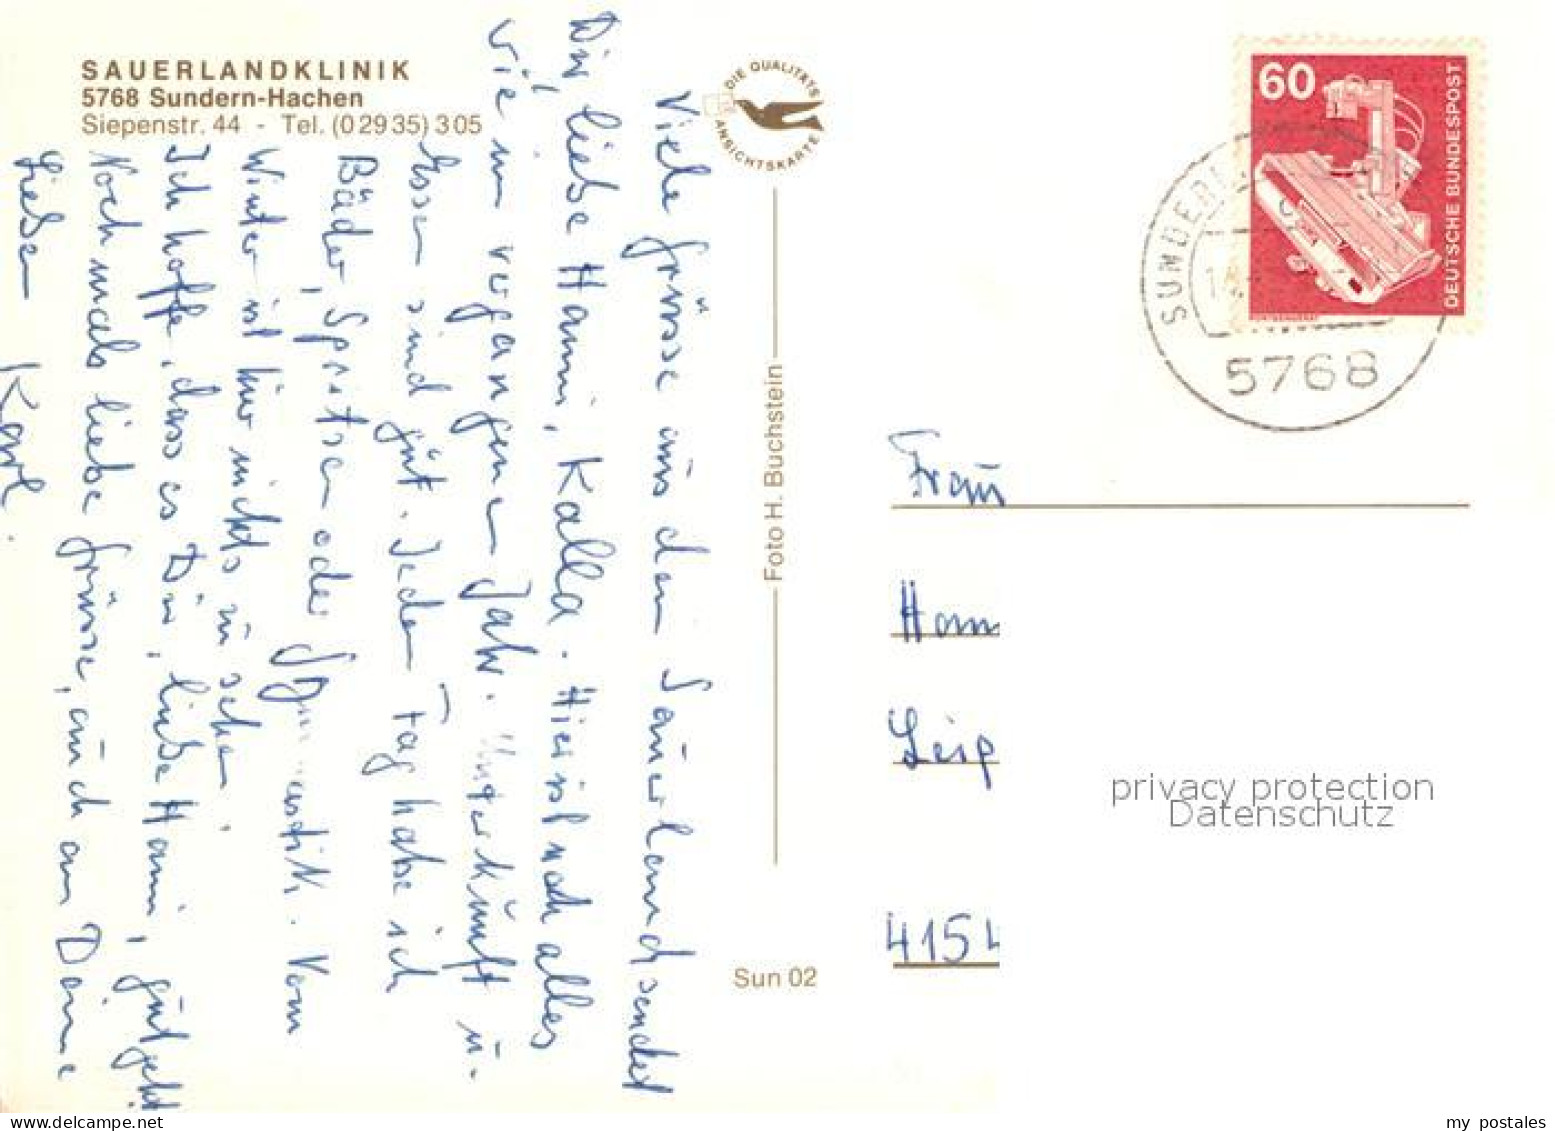 SAUERLANDKLINIK
5768 Sundern-Hachen
Siepenstr. 44 - Tel. (0 29 35) 3 05
DIE QUALITÄTS
ANSICHTSKARTE
Viele Grüsse aus dem Sauerland sendet
Dir, liebe Hanni, Kalla. Hier ist noch alles
wie im vergangenen Jahr. Unterkunft u.
Essen sind gut. Jeden Tag habe ich
Bäder, Spritzen oder Gymnastik. Vom
Winter ist hier nichts zu sehen.
Ich hoffe, dass es Dir, liebe Hanni, gut geht
Nochmals liebe Grüsse, auch an Deine
Lieben
Karl.
Foto H. Buchstein
Sun 02
60
DEUTSCHE BUNDESPOST
SUNDERN
5768
Frau
Hann
Leip
4154
privacy protection
Datenschutz
my postales